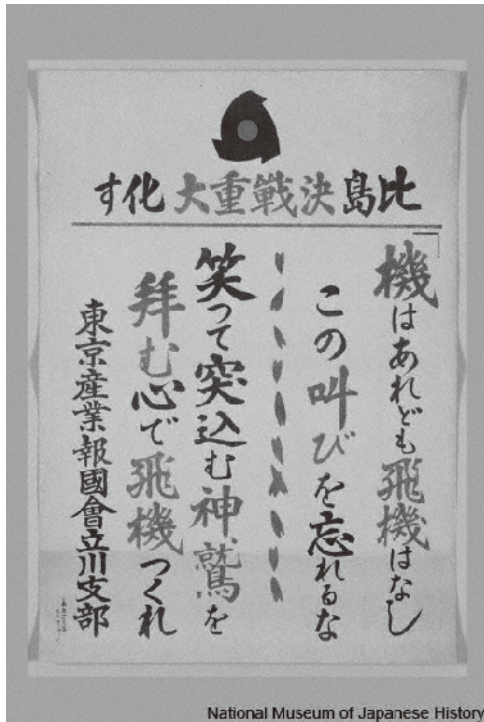 比島決戰重大化す
「機はあれども飛機はなし
この叫びを忘れるな
笑つて突込む神鷲を
拝む心で飛機つくれ
東京産業報國會立川支部
National Museum of Japanese History